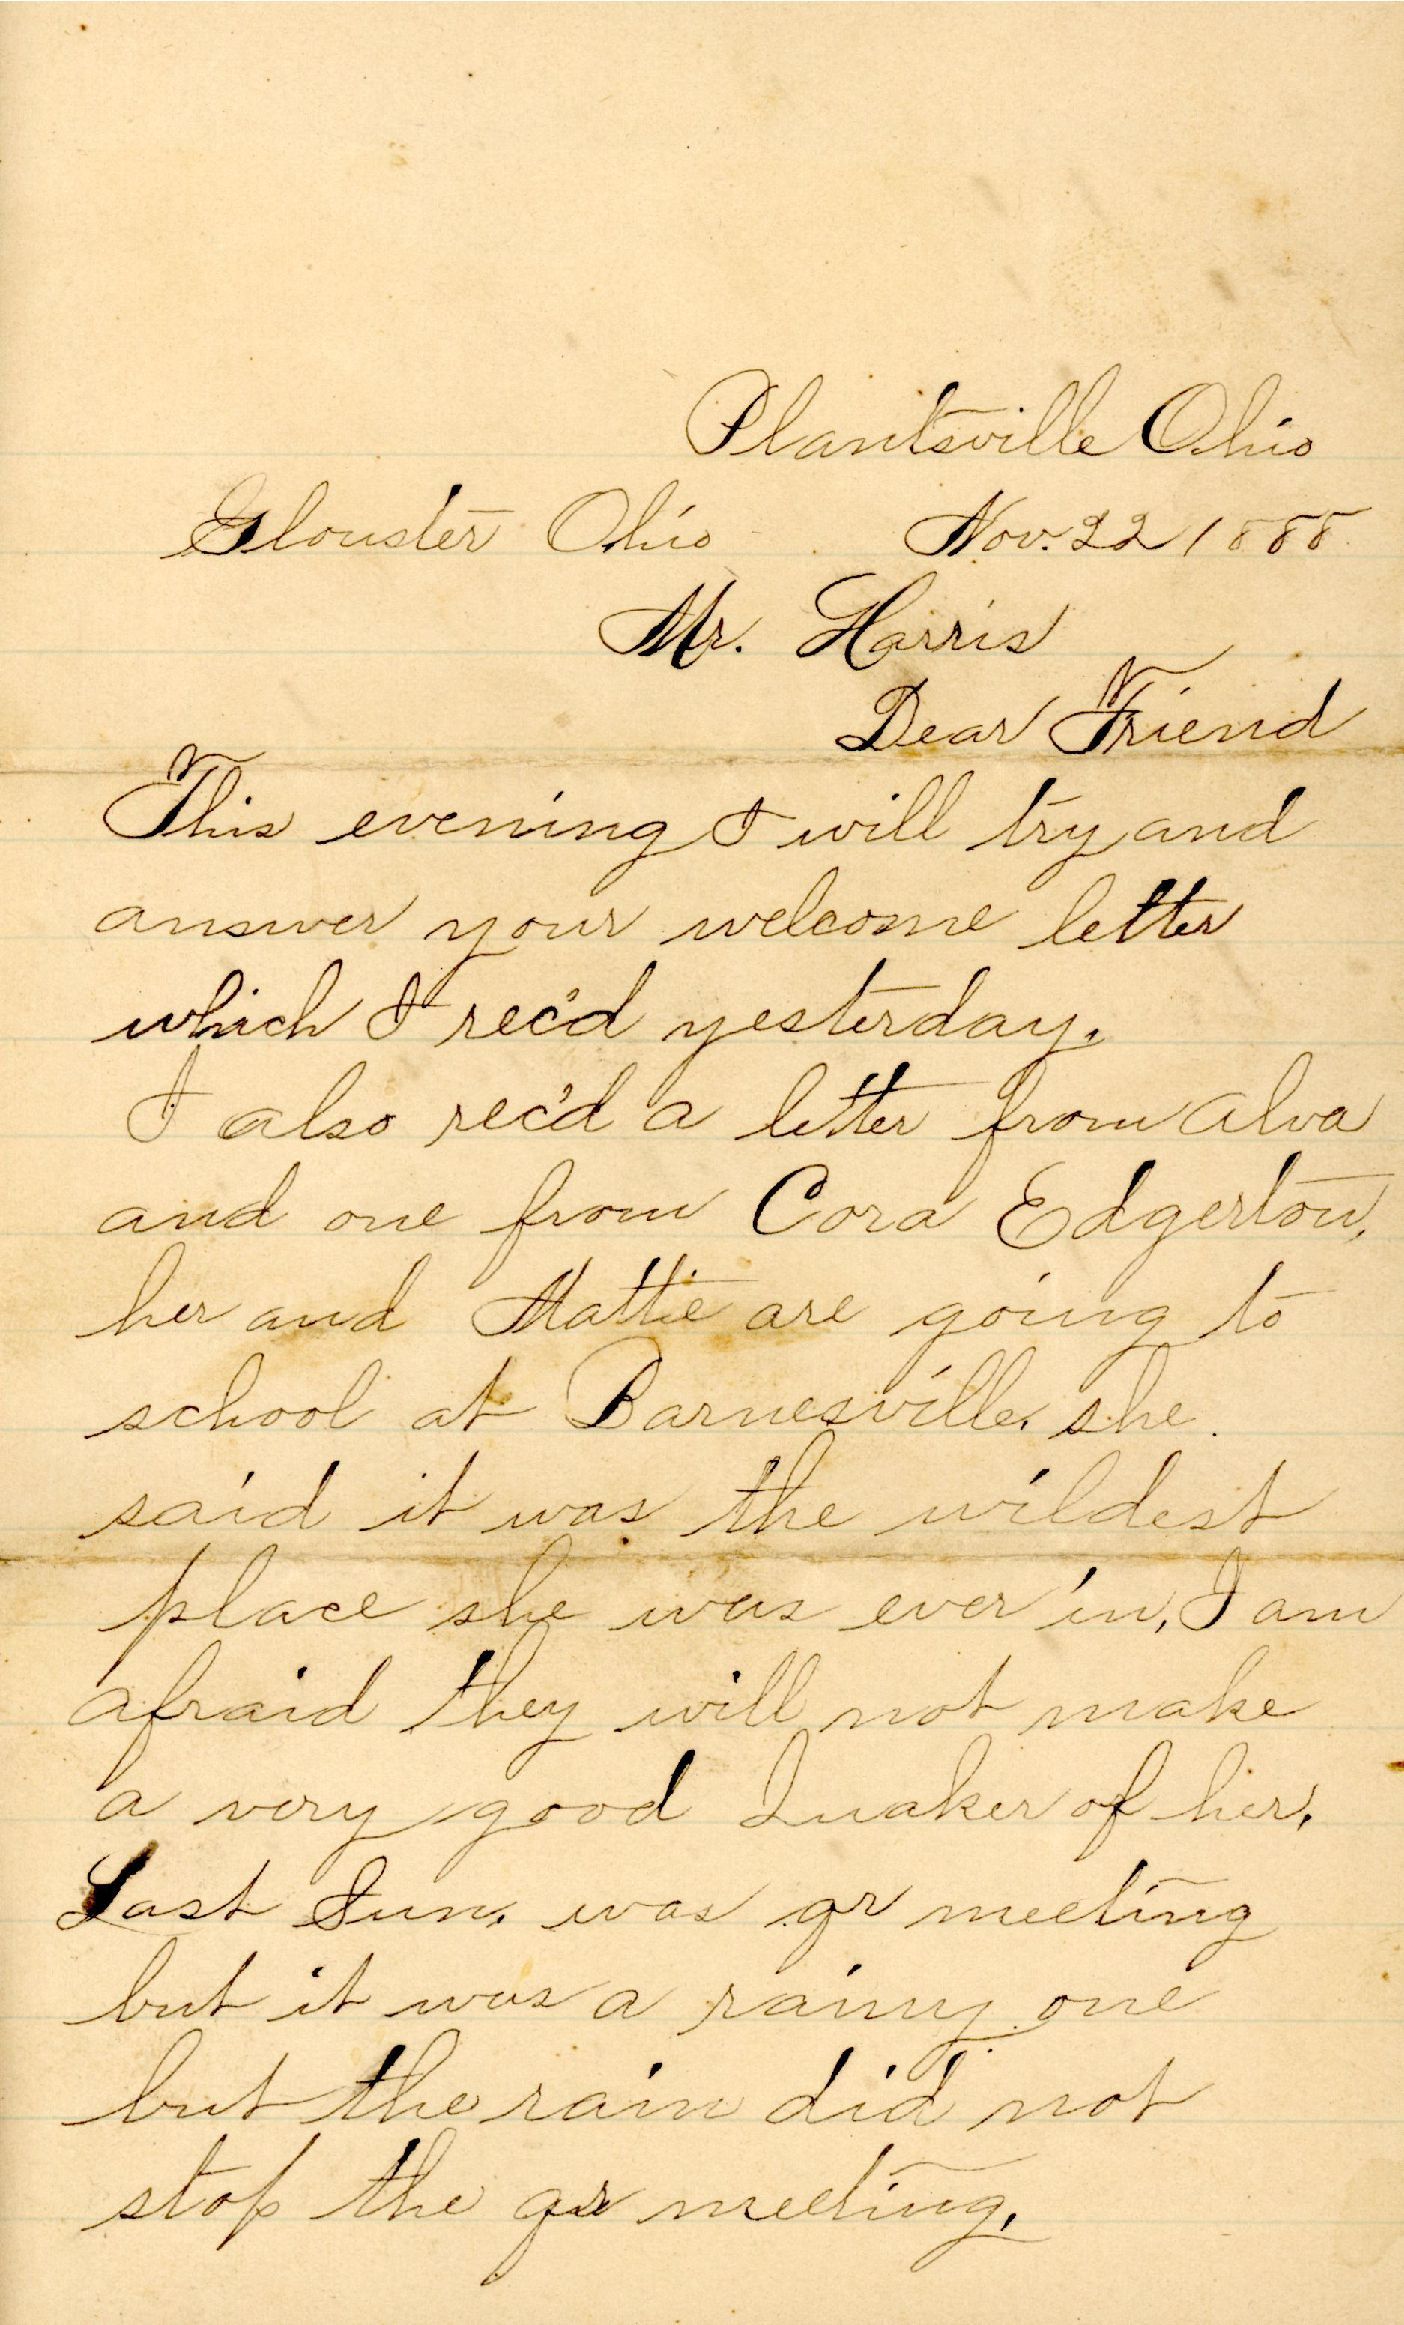 Plantsville Ohio
Glouster Ohio Nov. 22 1888.
Mr. Harris
Dear Friend
This evening I will try and
answer your welcome letter
which I rec'd yesterday.
I also rec'd a letter from Alva
and one from Cora Edgerton,
her and Mattie are going to
school at Barnesville. she
said it was the wildest
place she was ever in, I am
afraid they will not make
a very good Quaker of her.
Last Sun. was qr meeting
but it was a rainy one
but the rain did not
stop the qr meeting.